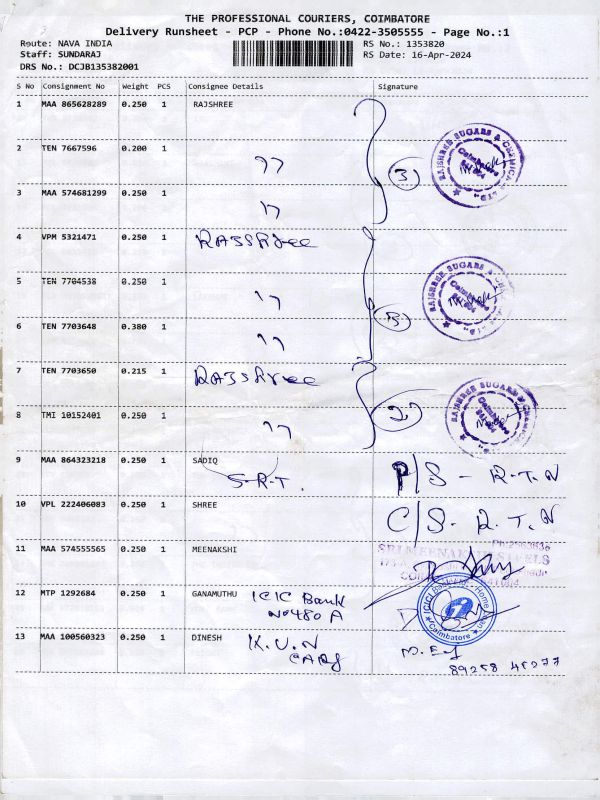 THE PROFESSIONAL COURIERS, COIMBATORE
Delivery Runsheet - PCP - Phone No.:0422-3505555 - Page No.:1
Route: NAVA INDIA
Staff: SUNDARAJ
DRS No.: DCJB135382001
RS No.: 1353820
RS Date: 16-Apr-2024
S No Consignment No Weight PCS Consignee Details Signature
1 MAA 865628289 0.250 1 RAJSHREE
2 TEN 7667596 0.200 1 "
(3)
RAJSHREE SUGARS & CHEMICALS LTD.
Coimbatore
3 MAA 574681299 0.250 1 "
4 VPM 5321471 0.250 1 RAJSHree
5 TEN 7704538 0.250 1 "
(3)
RAJSHREE SUGARS &
Coimbatore
6 TEN 7703648 0.380 1 "
7 TEN 7703650 0.215 1 RAJSHree
8 TMI 10152401 0.250 1 "
(2)
RAJSHREE SUGARS &
Coimbatore
9 MAA 864323218 0.250 1 SADIQ
S-R-T. P/S - R.T.N
10 VPL 222406083 0.250 1 SHREE C/S - R.T.N
11 MAA 574555565 0.250 1 MEENAKSHI
SRI MEENAKSHI STEELS
12 MTP 1292684 0.250 1 GANAMUTHU ICIC Bank
No 480 A
ICICI Bank Home
Coimbatore
13 MAA 100560323 0.250 1 DINESH K.U.N
CARS
89258 45277